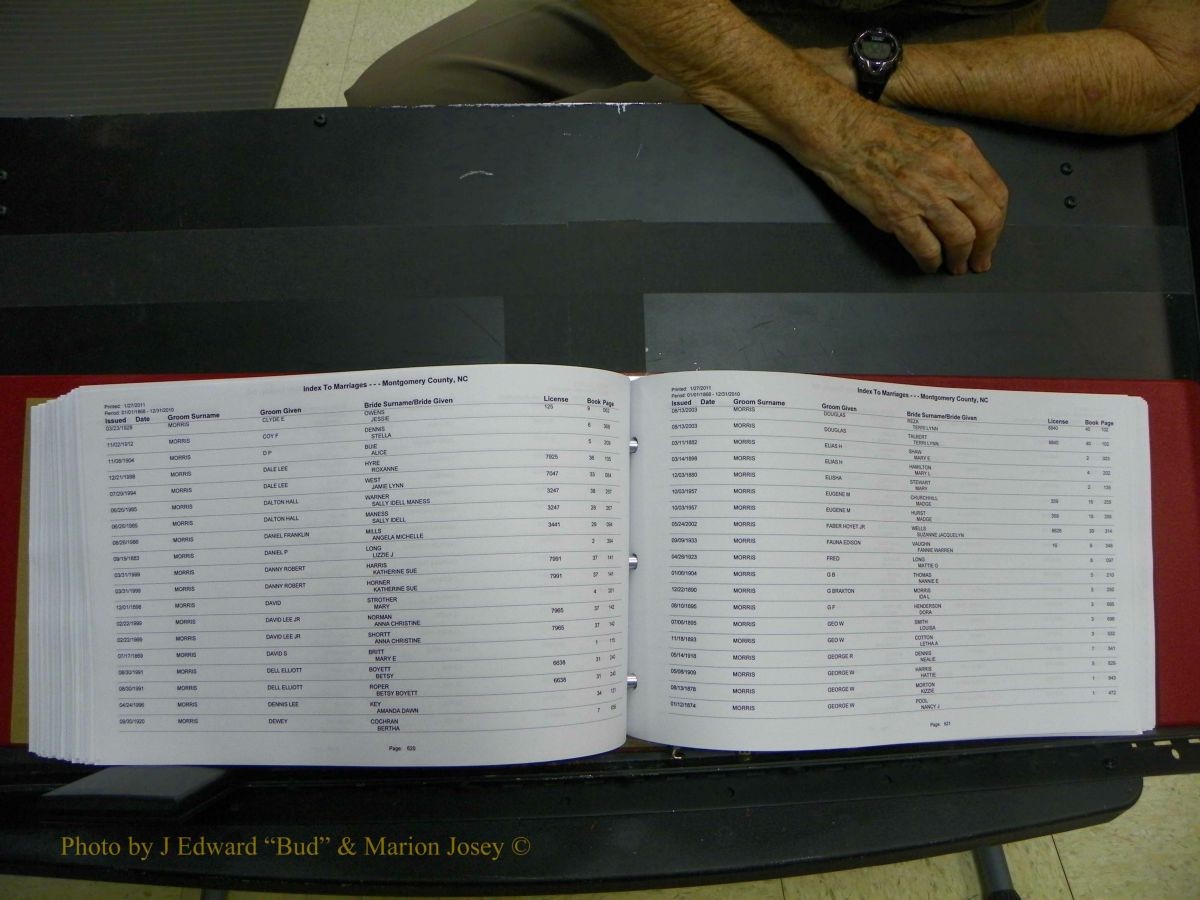 Index To Marriages - - - Montgomery County, NC
Printed: 1/27/2011
Period: 01/01/1868 - 12/31/2010
Issued Date Groom Surname Groom Given Bride Surname/Bride Given License Book Page
03/23/1928 MORRIS CLYDE E OWENS 125 9 062
JESSIE
11/02/1912 MORRIS COY F DENNIS 6 368
STELLA
11/08/1904 MORRIS D P BUIE 5 209
ALICE
12/21/1998 MORRIS DALE LEE HYRE 7925 36 135
ROXANNE
07/29/1994 MORRIS DALE LEE WEST 7047 33 084
JAMIE LYNN
06/26/1985 MORRIS DALTON HALL WARNER 3247 28 267
SALLY IDELL MANESS
06/26/1985 MORRIS DALTON HALL MANESS 3247 28 267
SALLY IDELL
08/26/1986 MORRIS DANIEL FRANKLIN MILLS 3441 29 094
ANGELA MICHELLE
09/19/1883 MORRIS DANIEL P LONG 2 384
LIZZIE J
03/31/1999 MORRIS DANNY ROBERT HARRIS 7991 37 141
KATHERINE SUE
03/31/1999 MORRIS DANNY ROBERT HORNER 7991 37 141
KATHERINE SUE
12/01/1898 MORRIS DAVID STROTHER 4 321
MARY
02/22/1999 MORRIS DAVID LEE JR NORMAN 7965 37 142
ANNA CHRISTINE
02/22/1999 MORRIS DAVID LEE JR SHORTT 7965 37 142
ANNA CHRISTINE
07/17/1869 MORRIS DAVID S BRITT 1 115
MARY E
08/30/1991 MORRIS DELL ELLIOTT BOYETT 6638 31 240
BETSY
08/30/1991 MORRIS DELL ELLIOTT ROPER 6638 31 240
BETSY BOYETT
04/24/1996 MORRIS DENNIS LEE KEY 34 121
AMANDA DAWN
09/30/1920 MORRIS DEWEY COCHRAN 7
BERTHA
Page: 620
Index To Marriages - - - Montgomery County, NC
Printed: 1/27/2011
Period: 01/01/1868 - 12/31/2010
Issued Date Groom Surname Groom Given Bride Surname/Bride Given License Book Page
08/13/2003 MORRIS DOUGLAS REZA 8840 40 102
TERRI LYNN
08/13/2003 MORRIS DOUGLAS TALBERT 8840 40 102
TERRI LYNN
03/11/1882 MORRIS ELIAS H SHAW 2 323
MARY E
03/14/1898 MORRIS ELIAS H HAMILTON 4 202
MARY L
12/03/1880 MORRIS ELISHA STEWART 2 139
MARY
10/03/1957 MORRIS EUGENE M CHURCHILL 359 16 259
MADGE
10/03/1957 MORRIS EUGENE M HURST 359 16 259
MADGE
05/24/2002 MORRIS FABER HOYET JR WELLS 8628 39 314
SUZANNE JACQUELYN
09/09/1933 MORRIS FAUNA EDISON VAUGHN 16 9 348
FANNIE WARREN
04/26/1923 MORRIS FRED LONG 8 097
MATTIE G
01/06/1904 MORRIS G B THOMAS 5 210
NANNIE E
12/22/1890 MORRIS G BRAXTON MORRIS 3 250
IDA L
06/10/1895 MORRIS G F HENDERSON 3 695
DORA
07/06/1895 MORRIS GEO W SMITH 3 698
LOUISA
11/18/1893 MORRIS GEO W COTTON 3 532
LETHA A
05/14/1918 MORRIS GEORGE R DENNIS 7 341
NEALIE
05/08/1909 MORRIS GEORGE W HARRIS 5 829
HATTIE
08/13/1878 MORRIS GEORGE W MORTON 1 943
KIZZIE
01/12/1874 MORRIS GEORGE W POOL 1 472
NANCY J
Page: 621
Photo by J Edward “Bud” & Marion Josey ©